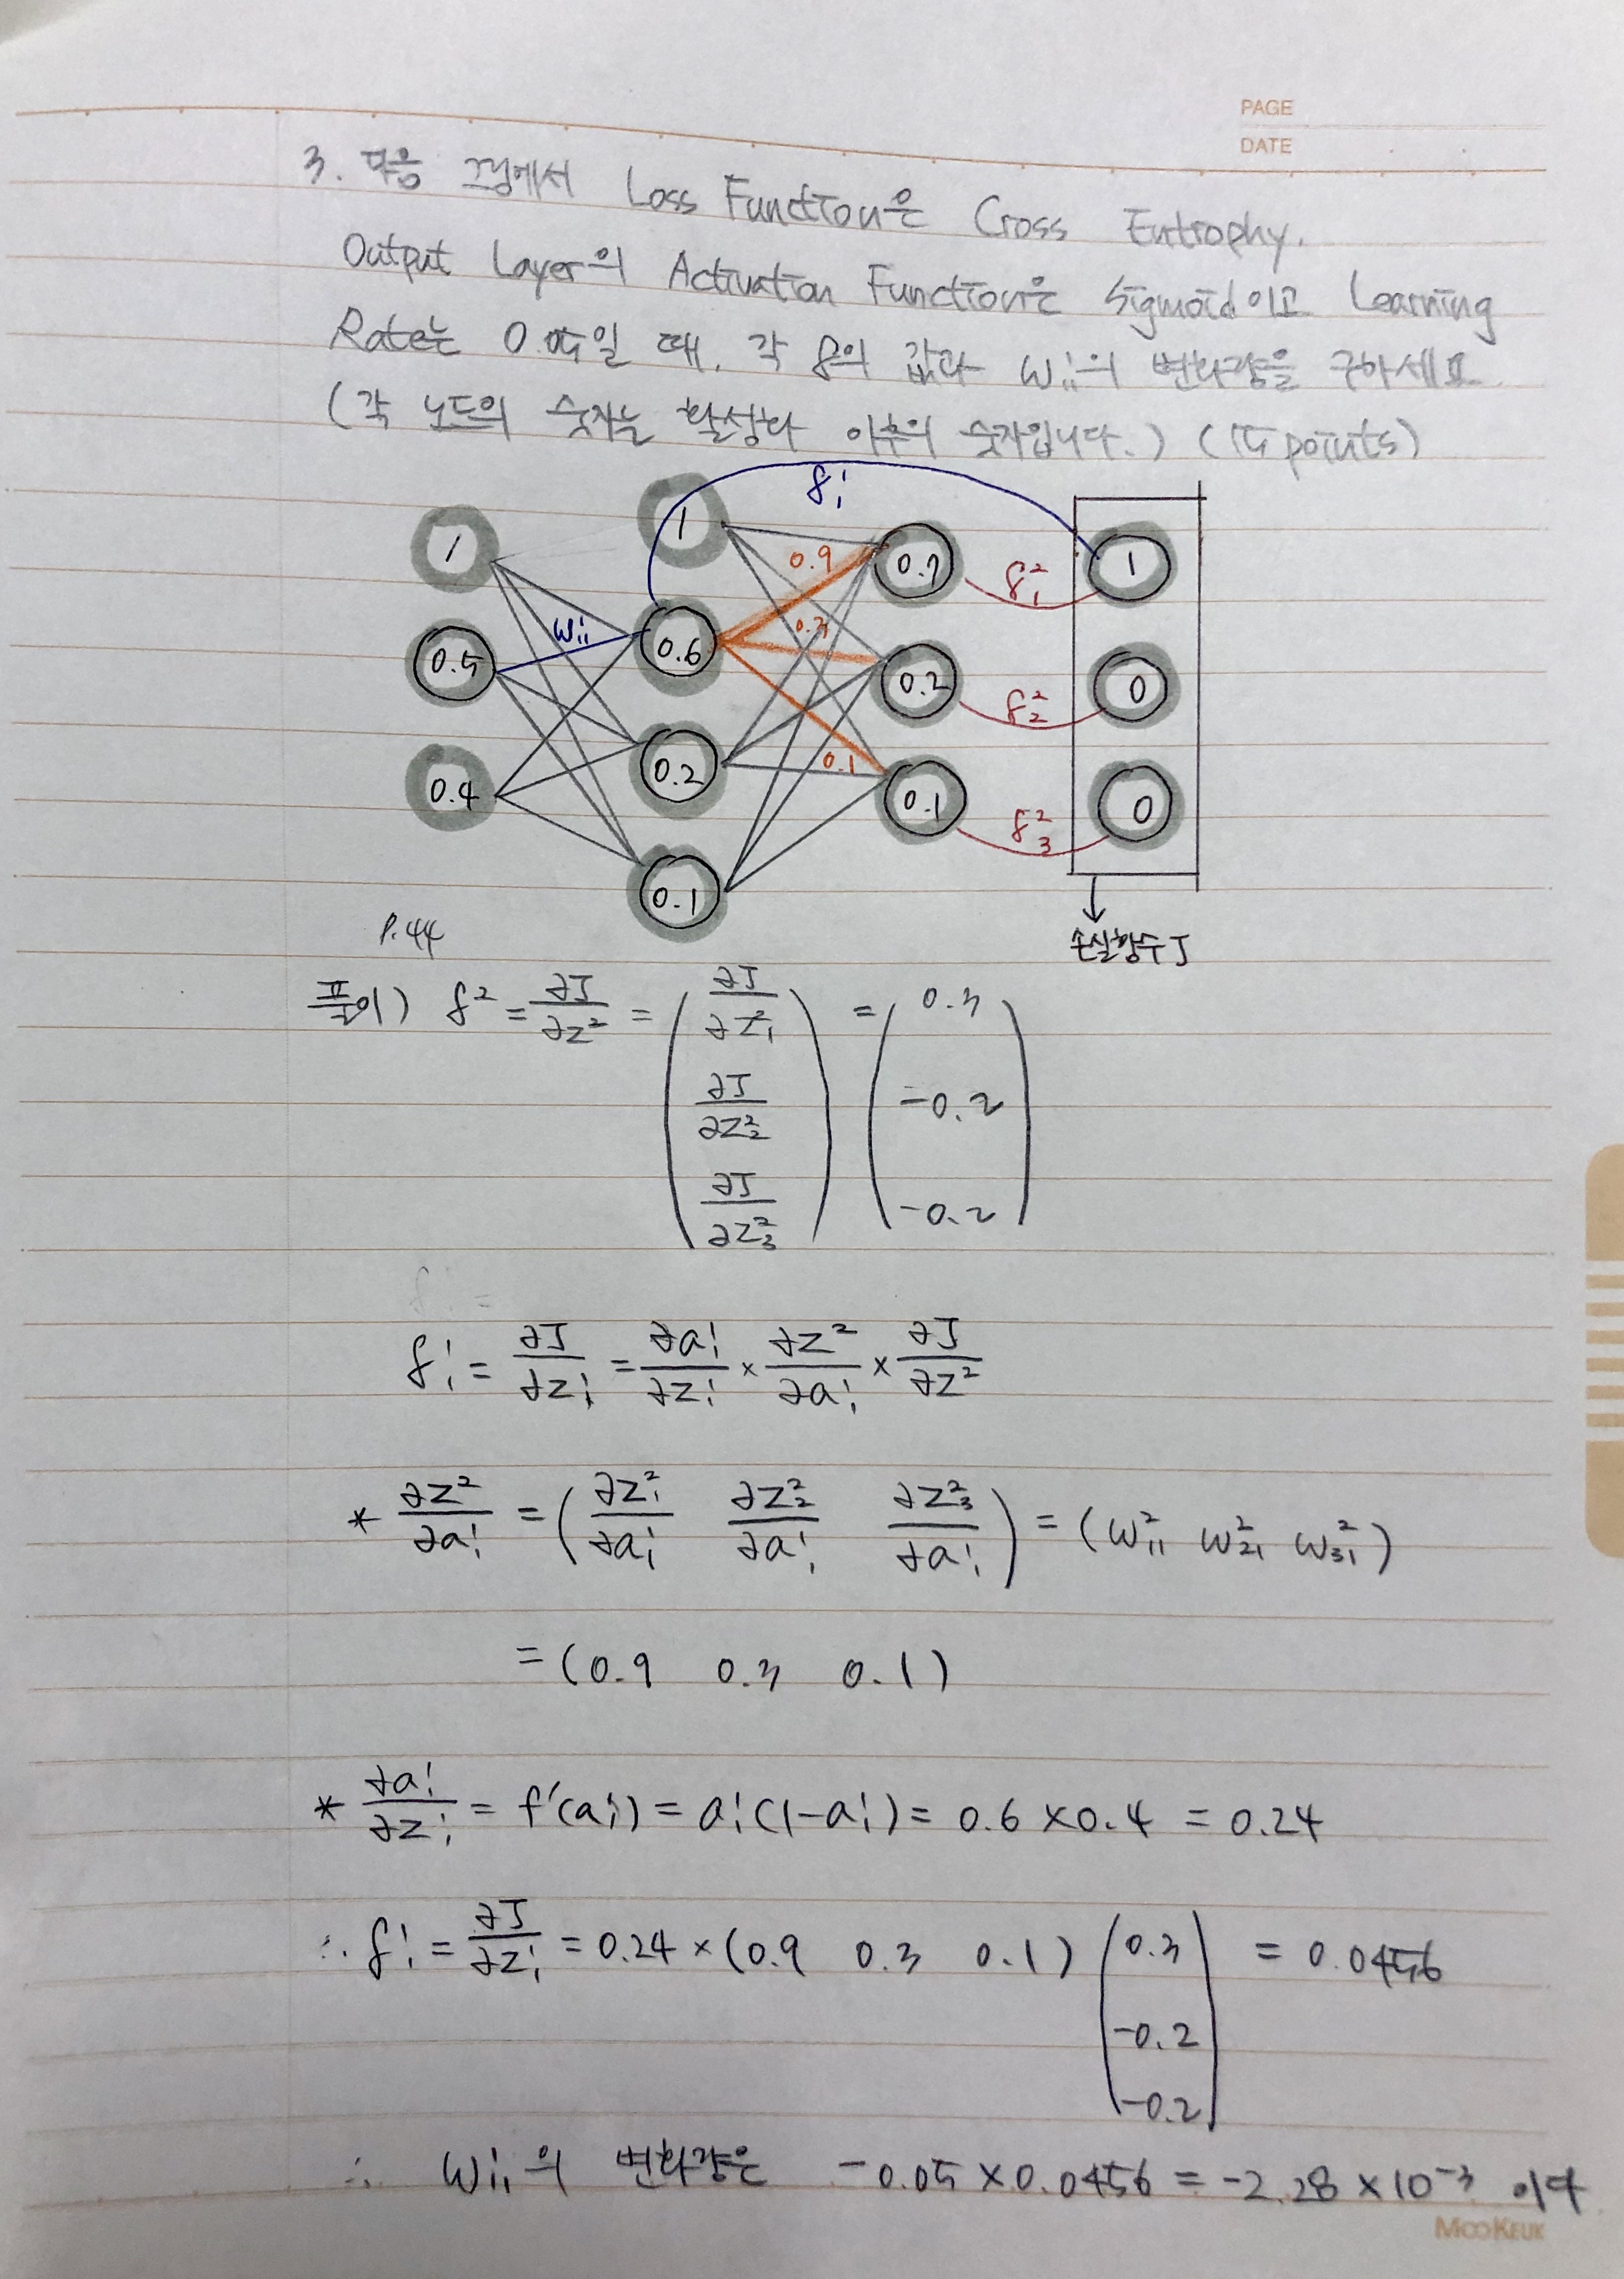 PAGE
DATE
3. 다음 그림에서 Loss Function은 Cross Entrophy.
Output Layer의 Activation Function은 Sigmoid이고 Learning
Rate는 0.05일 때, 각 δ의 값과 w¹₁₁의 변화량을 구하세요
(각 노드의 숫자는 활성화 이후의 숫자입니다.) (15 points)
δ¹₁
1 1 0.9 0.7 δ²₁ 1
w¹₁₁ 0.3
0.5 0.6 0.2 δ²₂ 0
0.4 0.2 0.1 0.1 δ²₃ 0
0.1
P.44
손실함수 J
풀이) δ² = ∂J/∂z² = (∂J/∂z²₁ ∂J/∂z²₂ ∂J/∂z²₃) = (0.3 -0.2 -0.2)
δ¹₁ = ∂J/∂z¹₁ = ∂a¹₁/∂z¹₁ × ∂z²/∂a¹₁ × ∂J/∂z²
* ∂z²/∂a¹₁ = (∂z²₁/∂a¹₁ ∂z²₂/∂a¹₁ ∂z²₃/∂a¹₁) = (w²₁₁ w²₂₁ w²₃₁)
= (0.9 0.3 0.1)
* ∂a¹₁/∂z¹₁ = f'(a¹₁) = a¹₁(1-a¹₁) = 0.6 × 0.4 = 0.24
∴ δ¹₁ = ∂J/∂z¹₁ = 0.24 × (0.9 0.3 0.1) (0.3 -0.2 -0.2) = 0.0456
∴ w¹₁₁의 변화량은 -0.05 × 0.0456 = -2.28 × 10⁻³ 이다
MOOKEUK